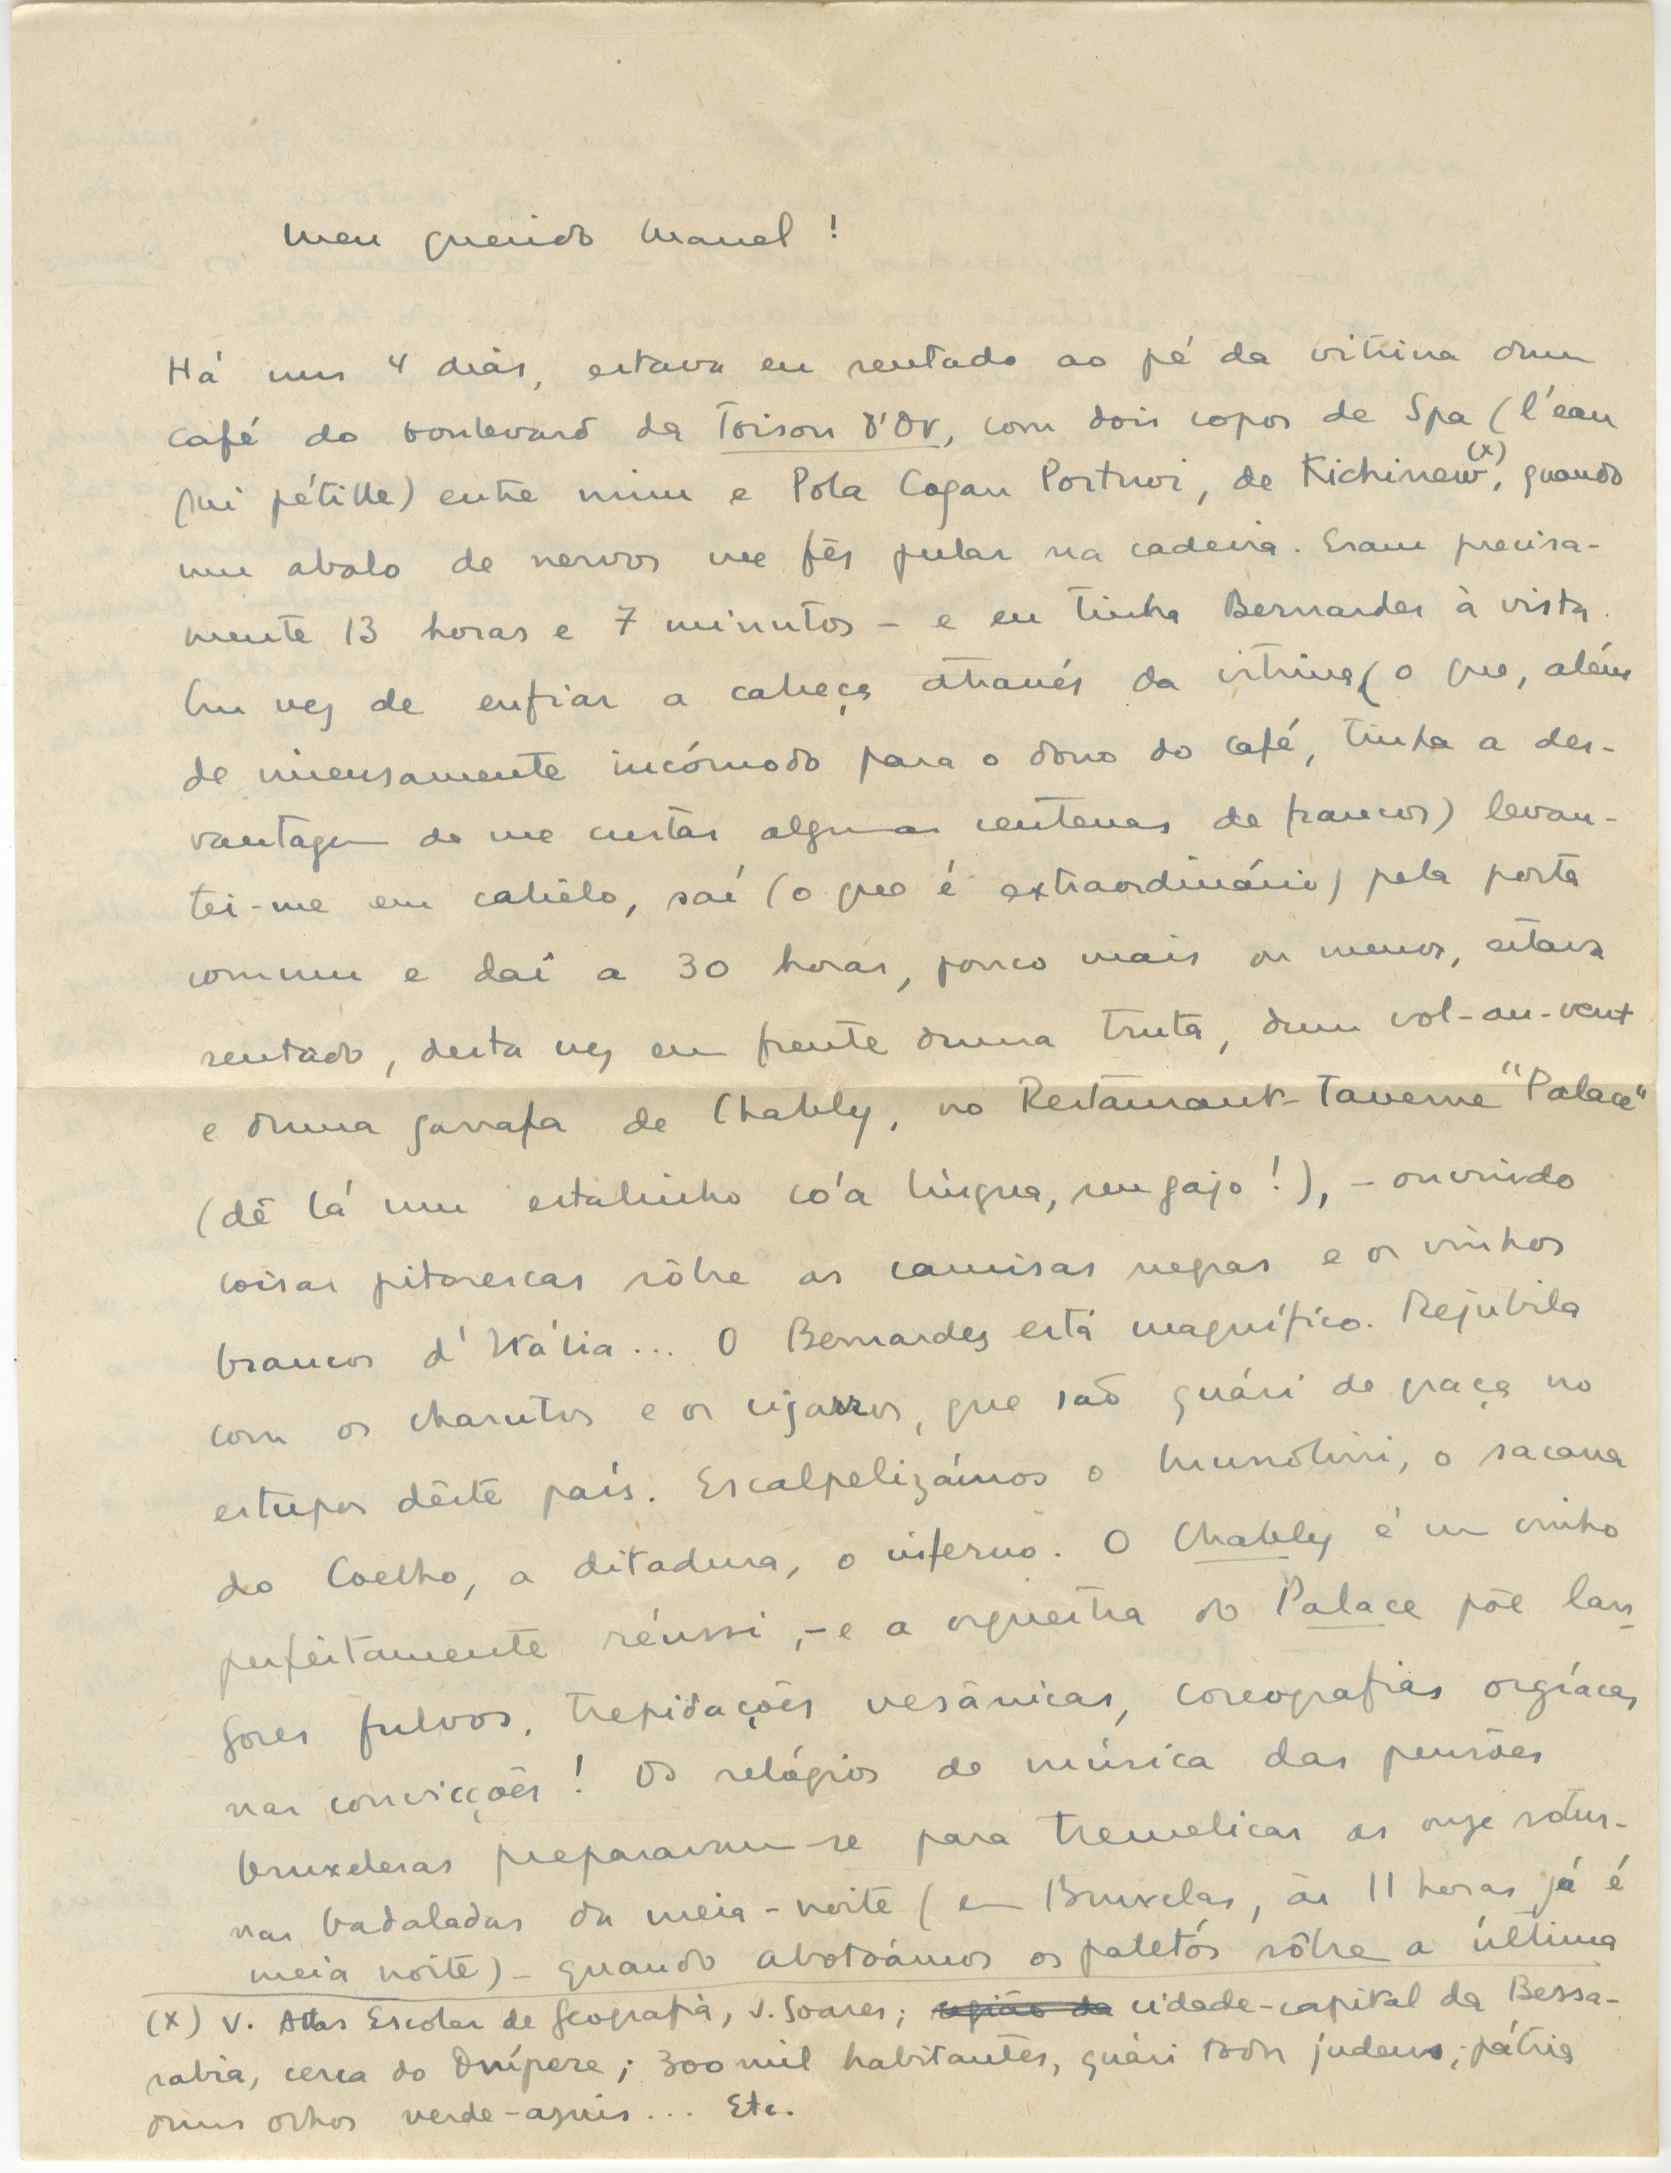 Meu querido Manel!
Há uns 4 dias, estava eu sentado ao pé da vitrina dum
café do boulevard da Toison d'Or, com dois copos de Spa (l'eau
qui pétille) entre mim e Pola Cogan Portnoi, de Kichinew(x), quando
um abalo de nervos me fês pular na cadeira. Eram precisa-
mente 13 horas e 7 minutos - e eu tinha Bernardes à vista.
Em vez de enfiar a cabeça através da vitrina (o que, além
de imensamente incómodo para o dono do café, tinha a des-
vantagem de me custar algumas centenas de francos) levan-
tei-me em cabêlo, saí (o que é extraordinário) pela porta
comum e daí a 30 horas, pouco mais ou menos, estava
sentado, desta vez em frente duma truta, dum vol-au-vent
e duma garrafa de Chably, no Restaurant-Taverne "Palace"
(dê lá um estalinho co'a língua, seu gajo!), - ouvindo
coisas pitorescas sôbre as camisas negras e os vinhos
brancos d'Itália... O Bernardes está magnífico. Rejubila
com os charutos e os cigarros, que são quási de graça no
estupor dêste país. Escalpelizámos o Mussolini, o sacana
do Coelho, a ditadura, o inferno. O Chably é um vinho
perfeitamente réussi, - e a orquestra do Palace põe lan-
gores fulvos, trepidações vesânicas, coreografias orgíacas
nas convicções! Os relógios de música das pensões
bruxelesas preparavam-se para tremelicar as onze sotur-
nas badaladas da meia-noite (em Bruxelas, às 11 horas já é
meia noite) - quando abotoámos os paletós sôbre a última
(x) V. Atlas Escolar de Geografia, J. Soares; região da cidade-capital da Bessa-
rabia, cerca do Dnípere; 300 mil habitantes, quási todos judeus; pátria
duns olhos verde-azuis... Etc.